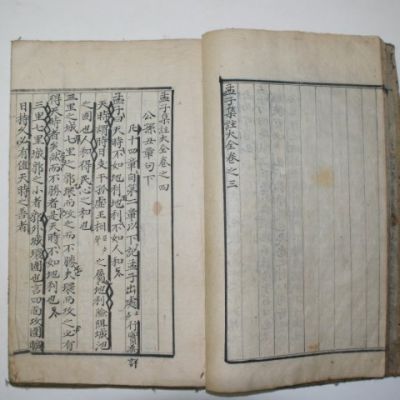 孟子集註大全卷之三
孟子集註大全卷之四
公孫丑章句下
凡十四章自第二章以下記孟子出處行實為詳
孟子曰天時不如地利地利不如人和
天時謂時日支干孤虛王相之屬地利險阻城池
之固也人和得民心之和也
三里之城七里之郭環而攻之而不勝夫環而攻之必有
得天時者矣然而不勝者是天時不如地利也
三里七里城郭之小者郭外城環圍也言四面攻圍曠
日持久必有值天時之善者